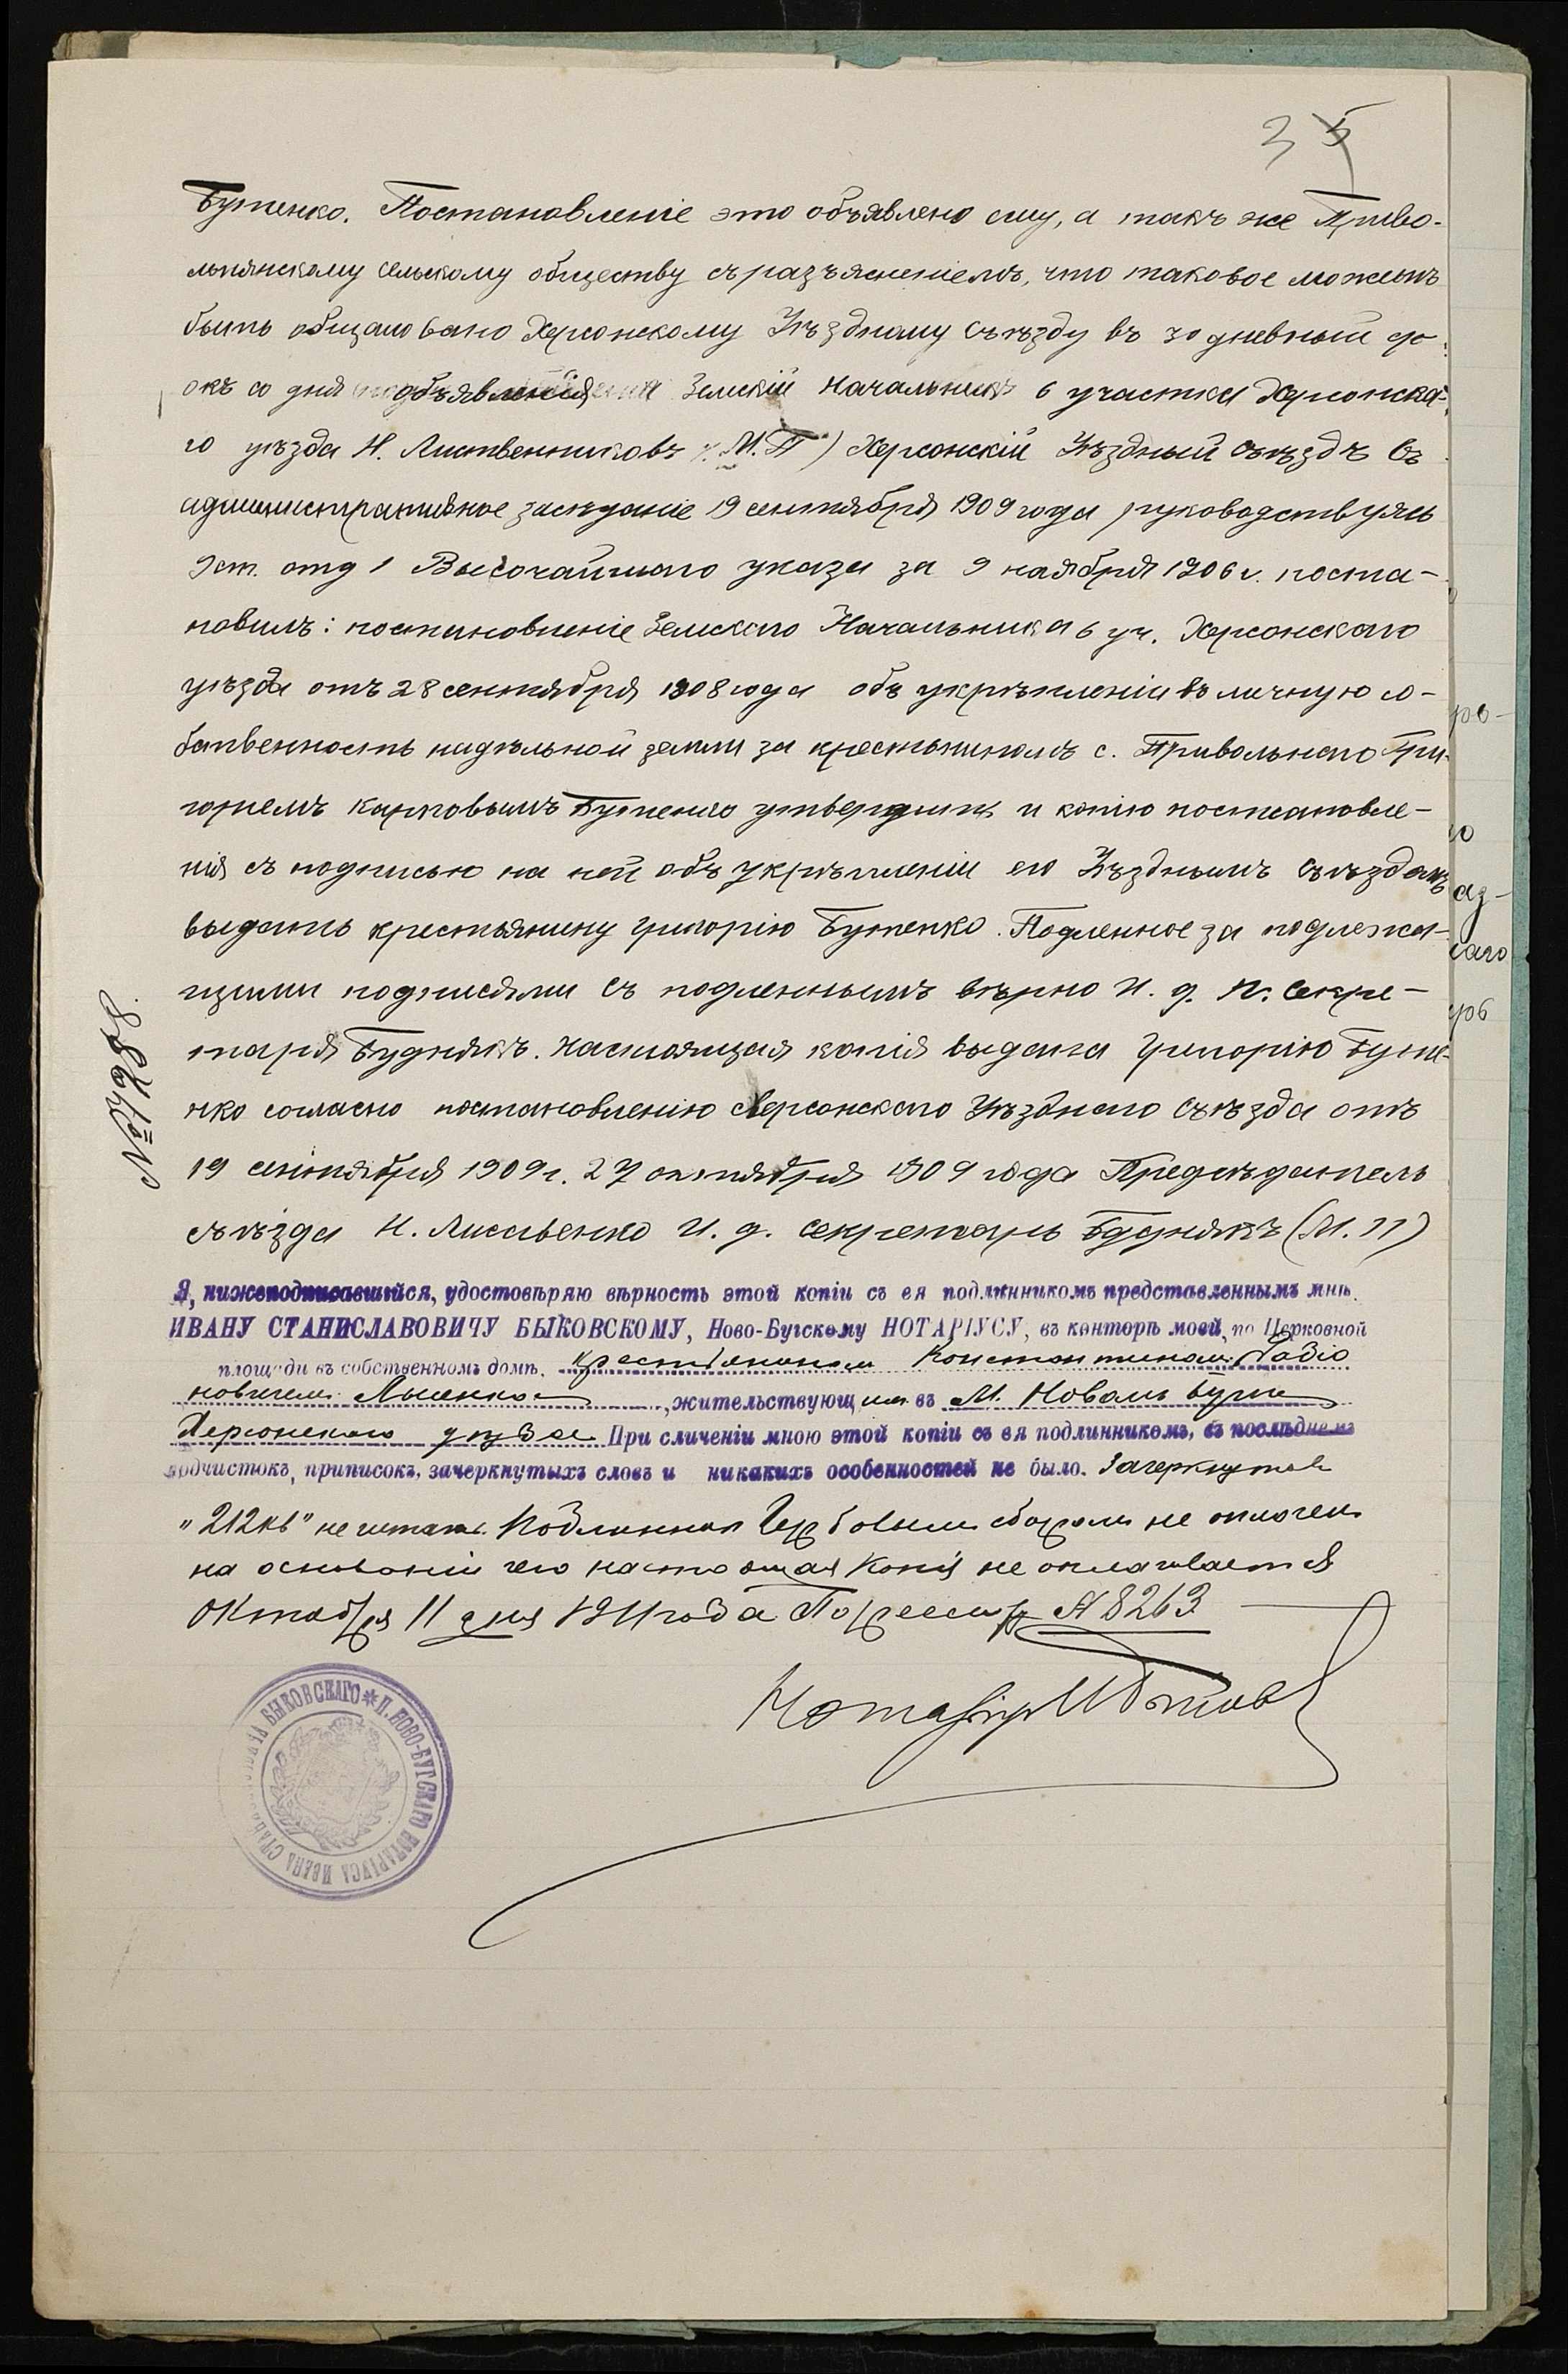 35
Бутенко. Постановленіе это объявлено ему, а такъ же Приво-
льнянскому сельскому обществу съ разъясненіемъ, что таковое можетъ
быть обжаловано Херсонскому Уѣздному Съѣзду въ 30 дневный ср-
окъ со дня объявленія Земскій Начальникъ 6 участка Херсонска-
го уѣзда Н. Листвениковъ (М.П) Херсонскій Уѣздный Съѣздъ въ
административное засѣданіе 19 сентября 1909 года руководствуясь
9 ст. отд 1 Высочайшаго указа за 9 ноября 1906 г. поста-
новилъ: постановленіе Земскаго Начальника 6 уч. Херсонскаго
уѣзда отъ 28 сентября 1908 года объ укрѣпленіи въ личную со-
бственность надѣльной земли за крестьяниномъ с. Привольнаго Гри-
горіемъ Карповымъ Бутенко утвердить и копію постановле-
нія съ подписью на ней объ укрѣпленіи его Уѣзднымъ Съѣздомъ
выдать крестьянину Григорію Бутенко. Подленное за подлежа-
щими подписями Съ подленнымъ вѣрно И. д. п. Секре-
таря Буднякъ. Настоящая копія выдана Григорію Буте-
нко согласно постановленію Херсонскаго Уѣзднаго Съѣзда отъ
19 сентября 1909 г. 27 октября 1909 года Предсѣдатель
съѣзда Н. Лисавенко И. д. Секретарь Буднякъ (М. П)
Я, нижеподписавшійся, удостовѣряю вѣрность этой копіи съ ея подлинникомъ представленнымъ мнѣ.
ИВАНУ СТАНИСЛАВОВИЧУ БЫКОВСКОМУ, Ново-Бугскому НОТАРІУСУ, въ канторѣ моей, по Церковной
площади въ собственномъ домѣ, крестьяниномъ Константиномъ Радіо
новичемъ Лысенко, жительствующимъ въ М. Новомъ Бугѣ
Херсонскаго уѣзда При сличеніи мною этой копіи съ ея подлинникомъ, въ послѣднемъ
подчистокъ, приписокъ, зачеркнутыхъ словъ и никакихъ особенностей не было. Зачеркнутое
"212кв" не читать. Подлинная Гербовымъ сборомъ не оплочена
на основаніи чего настоящая копія не оплачивается
Октября 11 дня 1911 года По реестру № 8263
Нотаріусъ И Быковс
* П. НОВО-БУГСКАГО НОТАРІУСА ИВАНА БЫКОВСКАГО